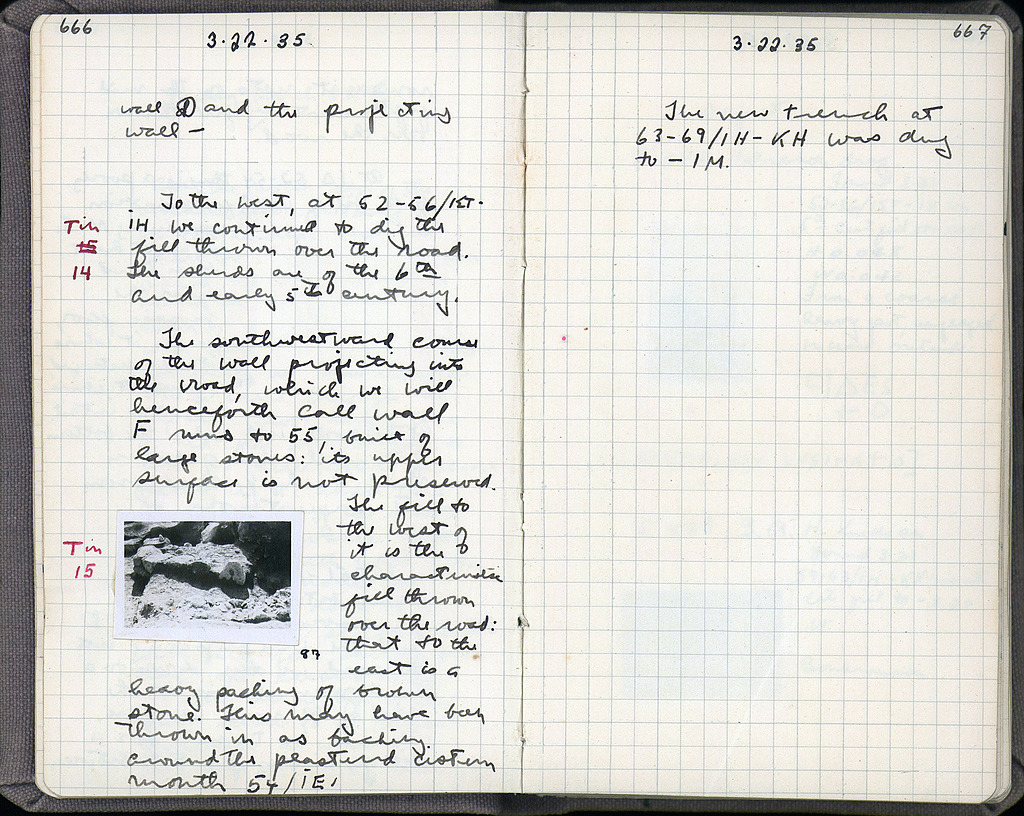 666
3·22·35
wall D and the projecting
wall —
To the west, at 52-56/IΣT-
Tin
IH we continued to dig the
15
fill thrown over the road.
14
The sherds are of the 6th
and early 5th century.
The southwestward course
of the wall projecting into
the road, which we will
henceforth call wall
F runs to 55, built of
large stones: its upper
surface is not preserved.
The fill to
the west of
Tin
it is the
15
characteristic
fill thrown
over the road:
that to the
87
east is a
heavy packing of brown
stone. This may have been
thrown in as packing
around the plastered cistern
mouth 54/IE.
667
3·22·35
The new trench at
63-69/IH-KH was dug
to -1M.